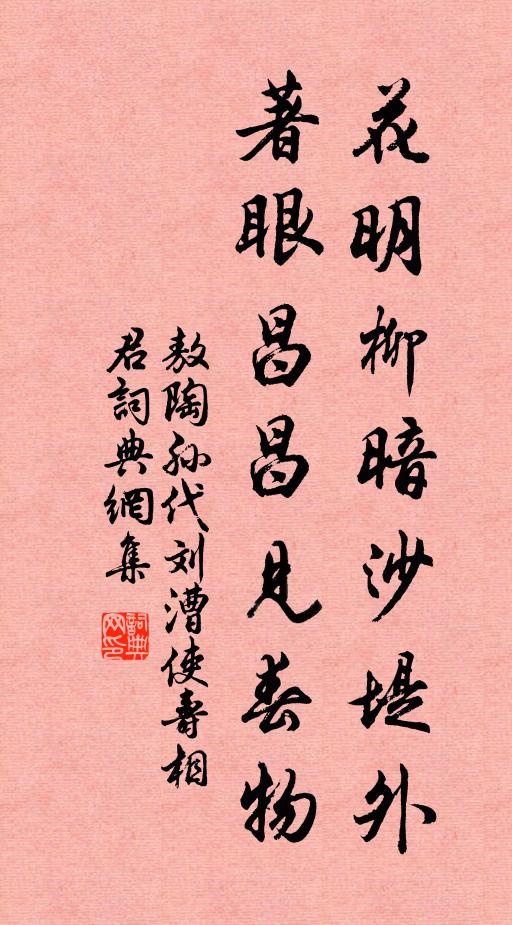 花明柳暗沙堤外
著眼昌昌見春物
敖陶孙代刘漕使壽相
君詞典網集
詞典
网印